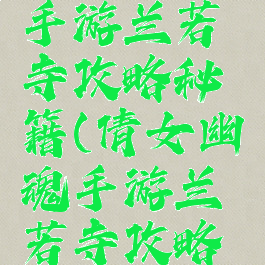 手游兰若
寺攻略秘
籍(倩女幽
魂手游兰
若寺攻略